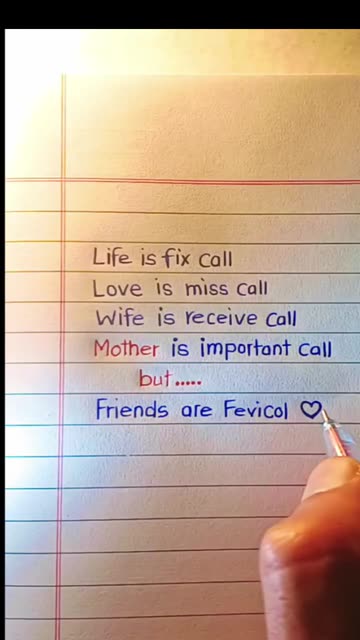 Life is fix call
Love is miss call
Wife is receive call
Mother is important call
but.....
Friends are Fevicol ♡